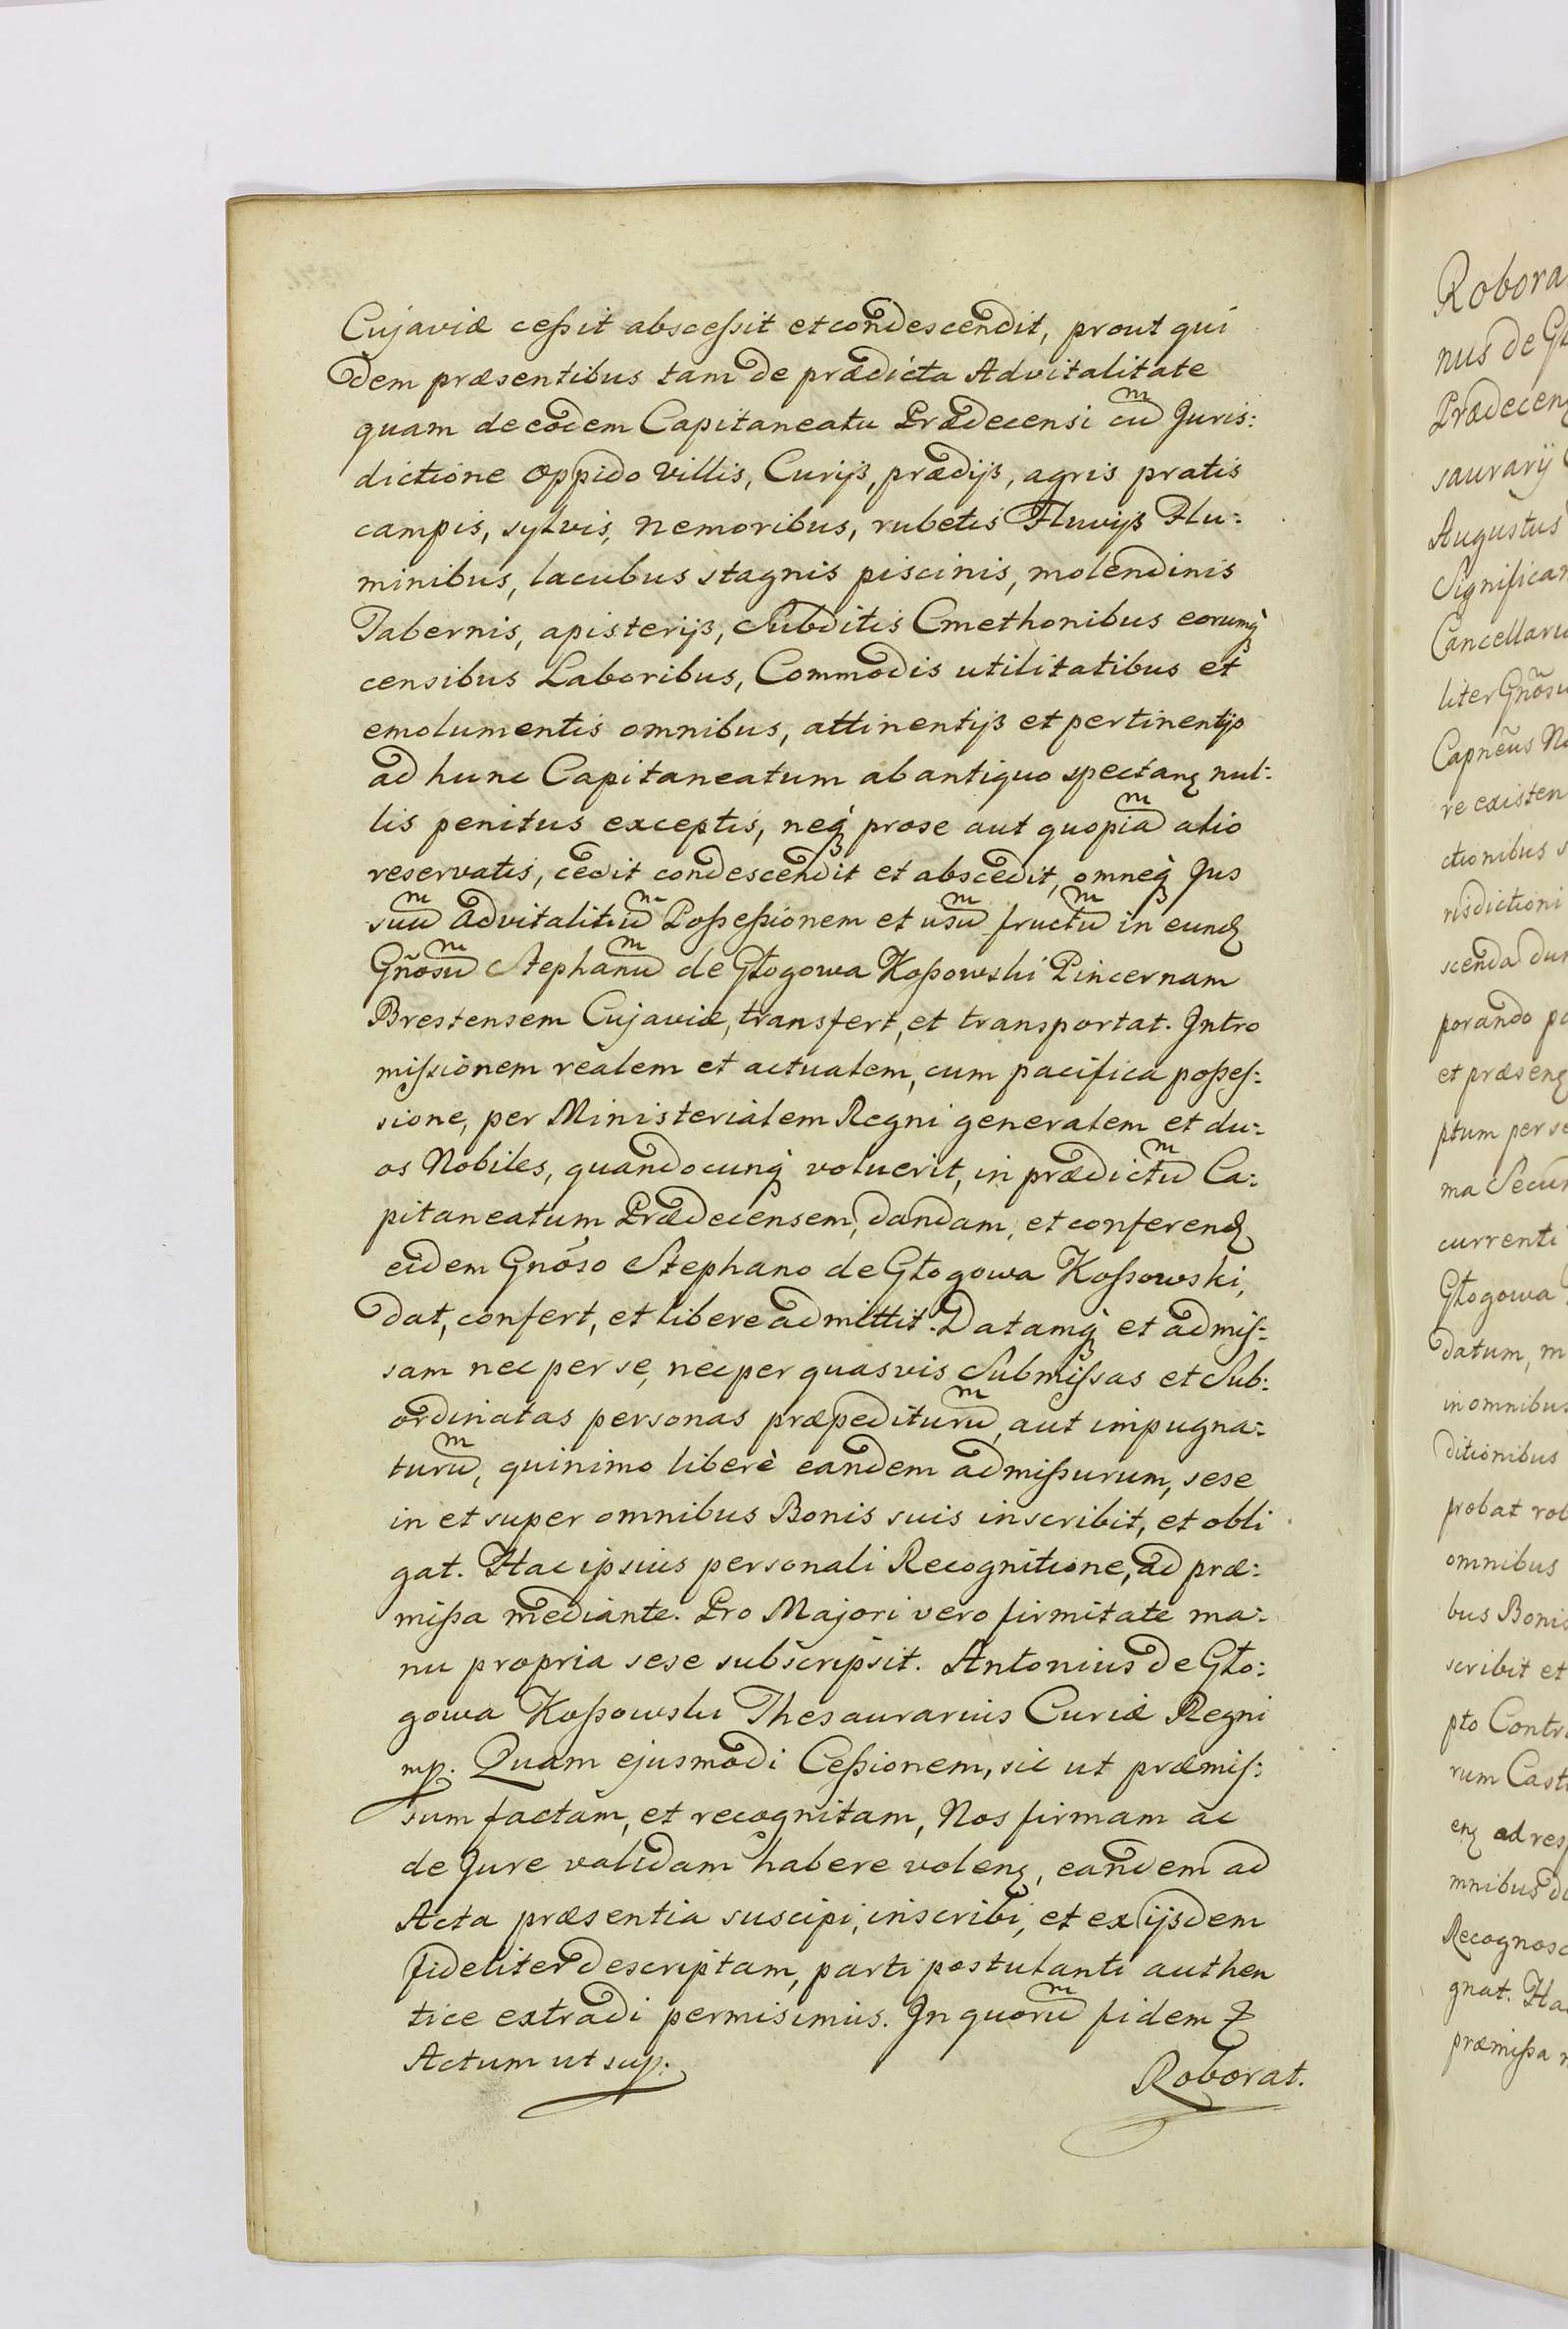 Cujaviæ ceßit absceßit et condescendit, prout qui
dem præsentibus tam de prædicta Advitalitate
quam de eodem Capitaneatu Prædecensi cuͫ Juris:
dictione oppido villis, Curijs, prædijs, agris pratis
campis, sylvis, nemoribus, rubetis Fluvijs Flu:
minibus, lacubus stagnis piscinis, molendinis
Tabernis, apisterijs, Subditis Cmethonibus eorumq̀
censibus Laboribus, Commodis utilitatibus et
emolumentis omnibus, attinentijs et pertinentijs
ad hunc Capitaneatum ab antiquo spectanꝫ nul:
lis penitus exceptis, neq̀ prose aut quopiaͫ alio
reservatis, cedit condescendit et abscedit, omneq̀ Jus
suuͫ advitalitiuͫ Poßeßionem et usuͫ fructuͫ in eundꝫ
Gñosuͫ Stephanuͫ de Głogowa Koßowski Pincernam
Brestensem Cujaviæ, transfert, et transportat. Intro
mißionem realem et actualem, cum pacifica poßes:
sione, per Ministerialem Regni generalem et du:
os Nobiles, quandocunq̀ voluerit, in prædictuͫ Ca:
pitaneatum Prædecensem, dandam, et conferendꝫ
eidem Gnõso Stephano de Głogowa Koßowski,
dat, confert, et libere admittit. Datamq̀ et admis:
sam nec per se, nec per quasvis Submißas et Sub:
ordinatas personas præpedituruͫ, aut impugna:
turuͫ, quinimo liberè eandem admißurum, sese
in et super omnibus Bonis suis inscribit, et obli
gat. Hac ipsius personali Recognitione, ad præ:
mißa mediante. Pro Majori vero firmitate ma:
nu propria sese subscripsit. Antonius de Gło:
gowa Koßowski Thesaurarius Curiæ Regni
mp. Quam ejusmodi Ceßionem, sic ut præmis:
sum factam, et recognitam, Nos firmam ac
de Jure validam habere volenꝫ, eandem ad
Acta præsentia suscipi, inscribi, et ex ijsdem
fideliter descriptam, parti postulanti authen
tice extradi permisimus. In quoruͫ fidem ꝫ
Actum ut sup.
Roborat.
Robora
nus de Gł
Prædecen
saurarij
Augustus
Significan
Cancellari
liter Gñosu
Capnẽus No
re existen
ctionibus s
risdictioni
scenda dum
porando p
et præsenꝫ
ptum per se
ma Secun
currenti
Głogowa
datum, m
in omnibus
ditionibus
probat rob
omnibus
bus Bonis
scribit et
pto Contra
rum Castr
enꝫ ad res
mnibus d
Recognosc
gnat. Ha
præmißa